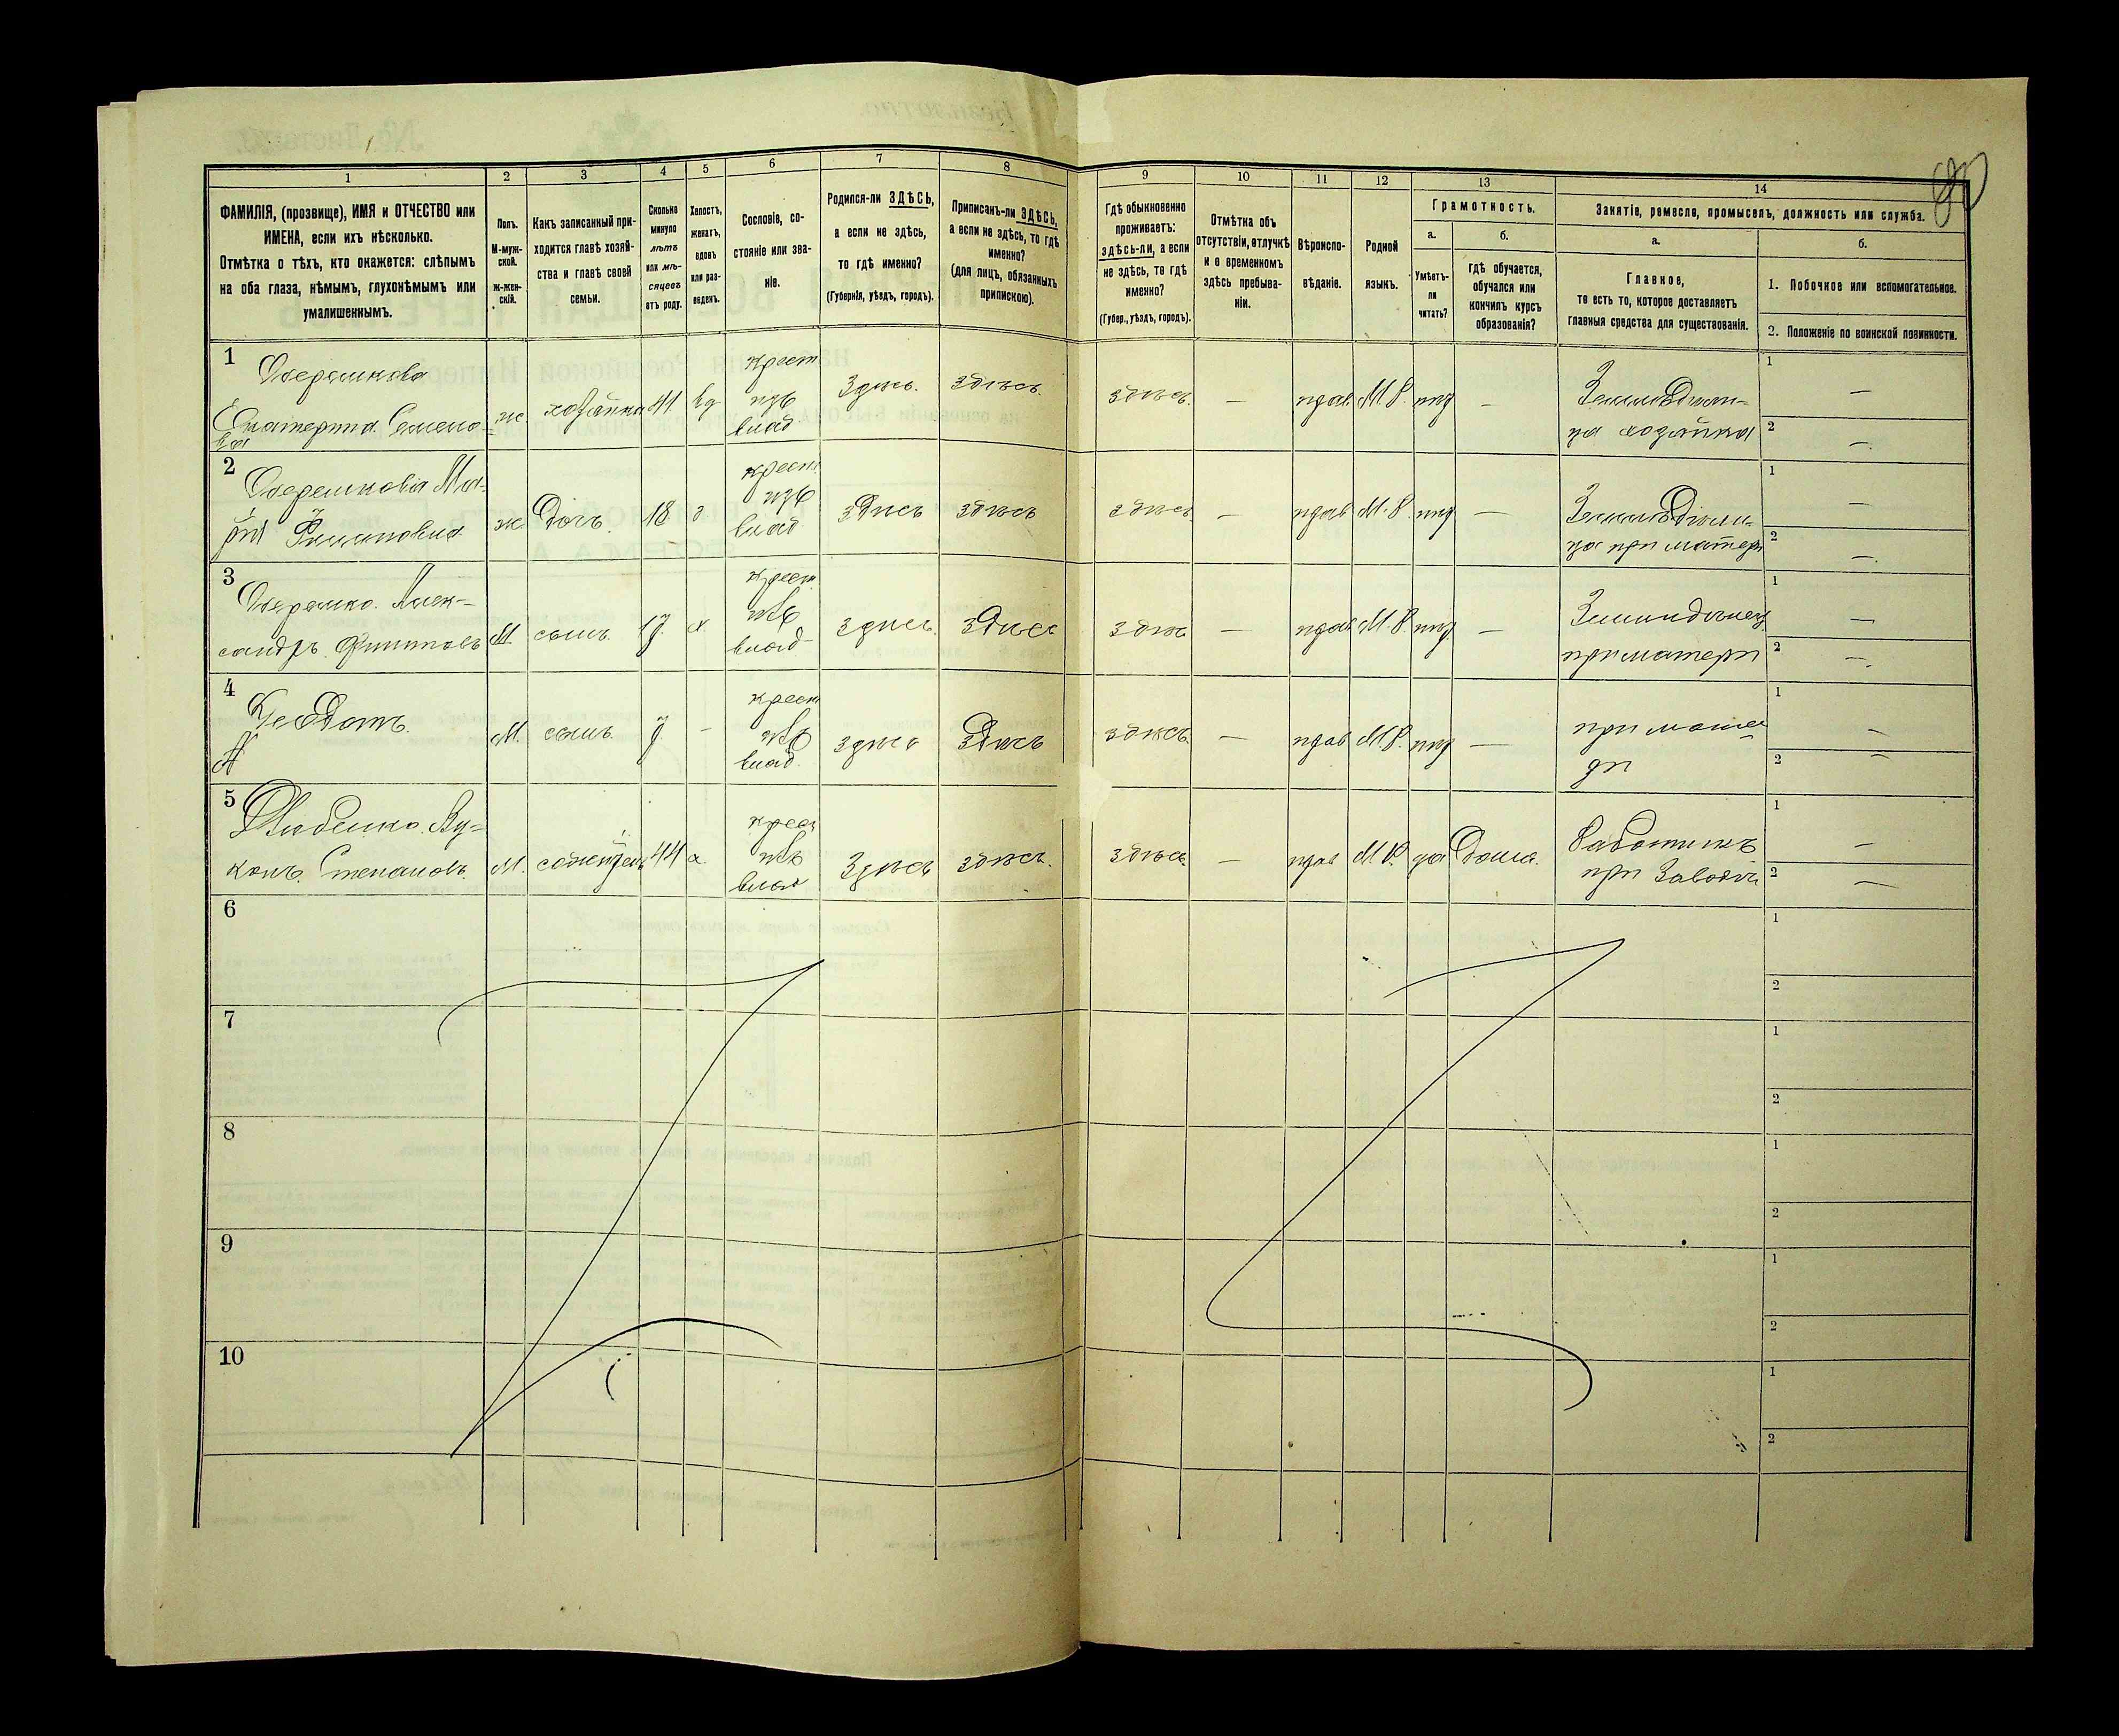 1 2 3 4 5 6 7 8 9 10 11 12 13 14
ФАМИЛІЯ, (прозвище), ИМЯ и ОТЧЕСТВО или
ИМЕНА, если ихъ нѣсколько.
Отмѣтка о тѣхъ, кто окажется: слѣпымъ
на оба глаза, нѣмымъ, глухонѣмымъ или
умалишеннымъ.
Полъ.
М-муж-
ской.
ж-жен-
скій.
Какъ записанный при-
ходится главѣ хозяй-
ства и главѣ своей
семьи.
Сколько
минуло
лѣтъ
или мѣ-
сяцевъ
отъ роду.
Холостъ,
женатъ,
вдовъ
или раз-
веденъ.
Сословіе, со-
стояніе или зва-
ніе.
Родился-ли ЗДѢСЬ,
а если не здѣсь,
то гдѣ именно?
(Губернія, уѣздъ, городъ).
Приписанъ-ли ЗДѢСЬ,
а если не здѣсь, то гдѣ
именно?
(для лицъ, обязанныхъ
припискою).
Гдѣ обыкновенно
проживаетъ:
здѣсь-ли, а если
не здѣсь, то гдѣ
именно?
(Губер., уѣздъ, городъ).
Отмѣтка объ
отсутствіи, отлучкѣ
и о временномъ
здѣсь пребыва-
ніи.
Вѣроиспо-
вѣданіе.
Родной
языкъ.
Грамотность.
а.
Умѣетъ-
ли
читать?
б.
гдѣ обучается,
обучался или
кончилъ курсъ
образованія?
Занятіе, ремесло, промыселъ, должность или служба.
а.
Главное,
то есть то, которое доставляетъ
главныя средства для существованія.
б.
1. Побочное или вспомогательное.
2. Положеніе по воинской повинности.
1
Екатерина Семено-
ва
ж. хозяйка 41 вд
крест
изъ
влад
здѣсь. здѣсь. здѣсь. — прав М.Р. нѣт —
Земледѣли-
ца хозяйка
1 —
2 —
2
Ма-
рія
ж. Дочь. 18 д
крест
изъ
влад
здѣсь здѣсь здѣсь — прав М.Р. нѣт —
Земледѣли-
ца при матери
1 —
2 —
3
Алек-
сандръ Филиповъ
М сынъ 17 х.
крест
изъ
влад
здѣсь. здѣсь здѣсь — прав М.Р. нѣт —
Земледѣлец
при матери
1 —
2 —
4
Феодотъ.
М. сынъ 7 —
крест
изъ
влад.
здѣсь здѣсь здѣсь. — прав М.Р. нѣт —
при мате-
ри
1 —
2 —
5
Ву-
колъ. Степановъ.
М. сожитель 44 х.
крест
изъ
влад
здѣсь здѣсь. здѣсь. — прав М.Р. да Дома.
Работникъ
при Заводѣ
1 —
2 —
6 1
2
7 1
2
8 1
2
9 1
2
10 1
2